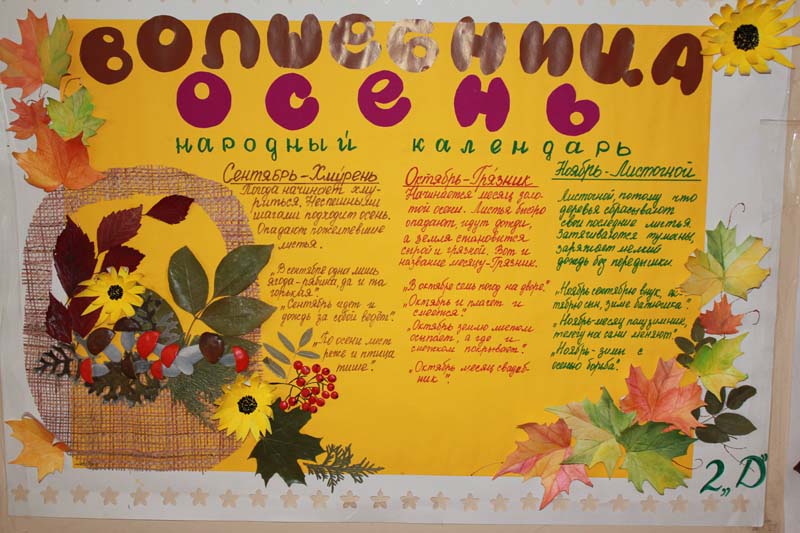 ВОЛШЕБНИЦА
ОСЕНЬ
народный календарь
Сентябрь-Хмурень
Погода начинает хму-
риться. Неспешными
шагами подходит осень.
Опадают пожелтевшие
листья.
„В сентябре одна лишь
ягода-рябина, да и та
горькая".
„Сентябрь идет и
дождь за собой ведёт".
„По осени лист
реже и птица
тише".
Октябрь-Грязник
Начинается месяц золо-
той осени. Листья быстро
опадают, идут дожди,
а земля становится
сырой и грязной. Вот и
название месяцу-Грязник.
„В октябре семь погод на дворе".
„Октябрь и плачет и
смеётся".
„Октябрь землю листом
осыпает, а где и
снежком покрывает".
„Октябрь месяц свадеб-
ник".
Ноябрь-Листогной
Листогной, потому что
деревья сбрасывают
свои последние листья.
Затягиваются туманы,
заряжает мелкий
дождь без передышки.
„Ноябрь сентябрю внук, ок-
тябрю сын, зиме батюшка"
„Ноябрь-месяц полузимник,
телегу на сани меняют".
„Ноябрь-зимы с
осенью борьба".
2„D"